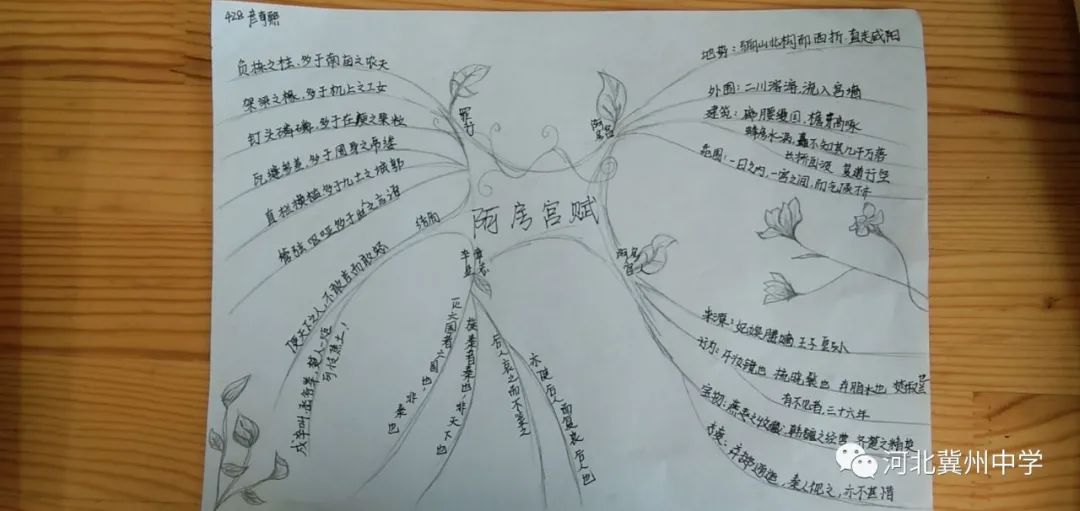 428
阿房宫赋
罪行
负栋之柱,多于南亩之农夫
架梁之椽,多于机上之工女
钉头磷磷,多于在庾之粟粒
瓦缝参差,多于周身之帛缕
直栏横槛多于九土之城郭
管弦呕哑多于市人之言语
结局
使天下之人,不敢言而敢怒
戍卒叫函谷举,楚人一炬
可怜焦土!
灭六国者六国也,非秦也
族秦者秦也,非天下也
后人哀之而不鉴之
亦使后人而复哀后人也
阿房宫
地势:骊山北构而西折 直走咸阳
外围:二川溶溶,流入宫墙
建筑:廊腰缦回,檐牙高啄
蜂房水涡,矗不知其几千万落
长桥卧波 复道行空
范围:一日之内,一宫之间,而气候不齐
阿房宫人
来源:妃嫔媵嫱 王子皇孙
行为:开妆镜也 梳晓鬟也 弃脂水也 焚椒兰
有不见者,三十六年
宝物:燕赵之收藏,韩魏之经营 齐楚之精英
弃掷逦迤,秦人视之,亦不甚惜
河北冀州中学